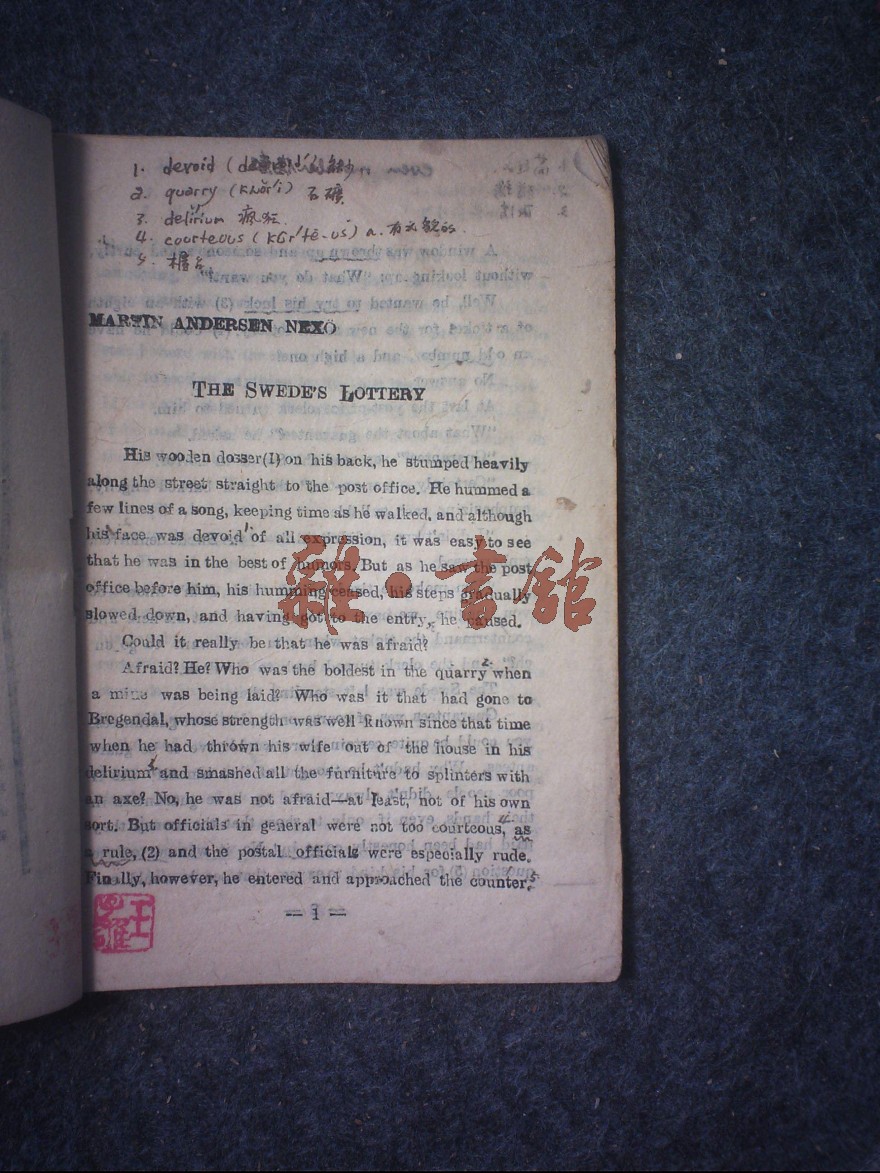 1. devoid
2. quarry (kwŏr'i) 石礦
3. delirium 瘋狂.
4. courteous (kûr'tē-ŭs) a. 有礼貌的
5. 櫃台
MARTIN ANDERSEN NEXÖ
THE SWEDE'S LOTTERY
His wooden dosser(1) on his back, he stumped heavily
along the street straight to the post office. He hummed a
few lines of a song, keeping time as he walked, and although
his face was devoid 1. of all expression, it was easy to see
that he was in the best of humors. But as he saw the post
office before him, his humming ceased, his steps gradually
slowed down, and having got to the entry, he paused.
Could it really be that he was afraid?
Afraid? He? Who was the boldest in the quarry 2. when
a mine was being laid? Who was it that had gone to
Bregendal, whose strength was well known since that time
when he had thrown his wife out of the house in his
delirium 3 and smashed all the furniture to splinters with
an axe? No, he was not afraid—at least, not of his own
sort. But officials in general were not too courteous, 4. as
a rule, (2) and the postal officials were especially rude.
Finally, however, he entered and approached the counter, 5.
— 1 —
雜·書舘